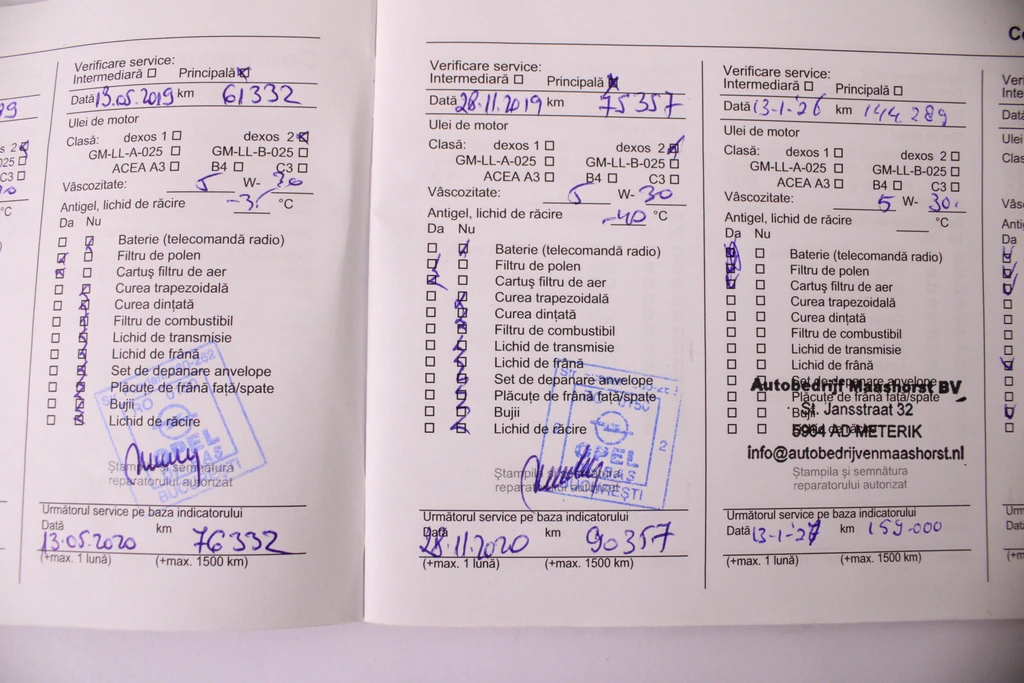 Verificare service:
Intermediară ☐ Principală ☒
Dată 13.05.2019 km 61332
Ulei de motor
Clasă: dexos 1 ☐ dexos 2 ☒
GM-LL-A-025 ☐ GM-LL-B-025 ☐
ACEA A3 ☐ B4 ☐ C3 ☐
Vâscozitate: 5 W- 30
Antigel, lichid de răcire °C
Da Nu
Baterie (telecomandă radio)
Filtru de polen
Cartuş filtru de aer
Curea trapezoidală
Curea dinţată
Filtru de combustibil
Lichid de transmisie
Lichid de frână
Set de depanare anvelope
Plăcuţe de frână faţă/spate
Bujii
Lichid de răcire
OPEL
BUCUREŞTI
Ştampila şi semnătura
reparatorului autorizat
Următorul service pe baza indicatorului
Dată km
13.05.2020 76332
(+max. 1 lună) (+max. 1500 km)
Verificare service:
Intermediară ☐ Principală ☒
Dată 28.11.2019 km 75357
Ulei de motor
Clasă: dexos 1 ☐ dexos 2 ☒
GM-LL-A-025 ☐ GM-LL-B-025 ☐
ACEA A3 ☐ B4 ☐ C3 ☐
Vâscozitate: 5 W- 30
Antigel, lichid de răcire -40 °C
Da Nu
Baterie (telecomandă radio)
Filtru de polen
Cartuş filtru de aer
Curea trapezoidală
Curea dinţată
Filtru de combustibil
Lichid de transmisie
Lichid de frână
Set de depanare anvelope
Plăcuţe de frână faţă/spate
Bujii
Lichid de răcire
OPEL
Ştampila şi semnătura
reparatorului autorizat
Următorul service pe baza indicatorului
Dată km
28.11.2020 90357
(+max. 1 lună) (+max. 1500 km)
Verificare service:
Intermediară ☐ Principală ☐
Dată 13-1-26 km 144.289
Ulei de motor
Clasă: dexos 1 ☐ dexos 2 ☐
GM-LL-A-025 ☐ GM-LL-B-025 ☐
ACEA A3 ☐ B4 ☐ C3 ☐
Vâscozitate: 5 W- 30.
Antigel, lichid de răcire °C
Da Nu
Baterie (telecomandă radio)
Filtru de polen
Cartuş filtru de aer
Curea trapezoidală
Curea dinţată
Filtru de combustibil
Lichid de transmisie
Lichid de frână
Set de depanare anvelope
Autobedrijf Maashorst BV
Plăcuţe de frână faţă/spate
St. Jansstraat 32
Bujii
5964 AD METERIK
info@autobedrijvenmaashorst.nl
Ştampila şi semnătura
reparatorului autorizat
Următorul service pe baza indicatorului
Dată 13-1-27 km 159.000
(+max. 1 lună) (+max. 1500 km)